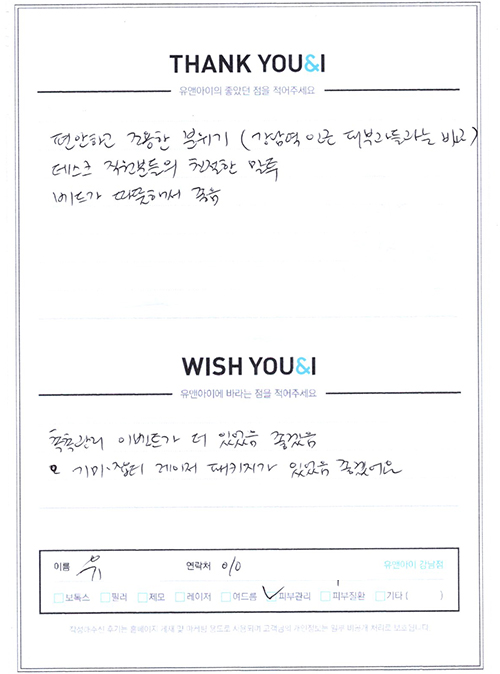 THANK YOU&I
유앤아이의 좋았던 점을 적어주세요
편안하고 조용한 분위기 (강남역 인근 피부과들과는 비교)
데스크 직원분들의 친절한 말투
베드가 따뜻해서 좋음
WISH YOU&I
유앤아이에 바라는 점을 적어주세요
촉촉관리 이벤트가 더 있었음 좋겠음
기미·잡티 레이저 패키지가 있었음 좋겠어요
이름 유 연락처 010 유앤아이 강남점
보톡스 필러 제모 레이저 여드름 피부관리 피부질환 기타 ( )